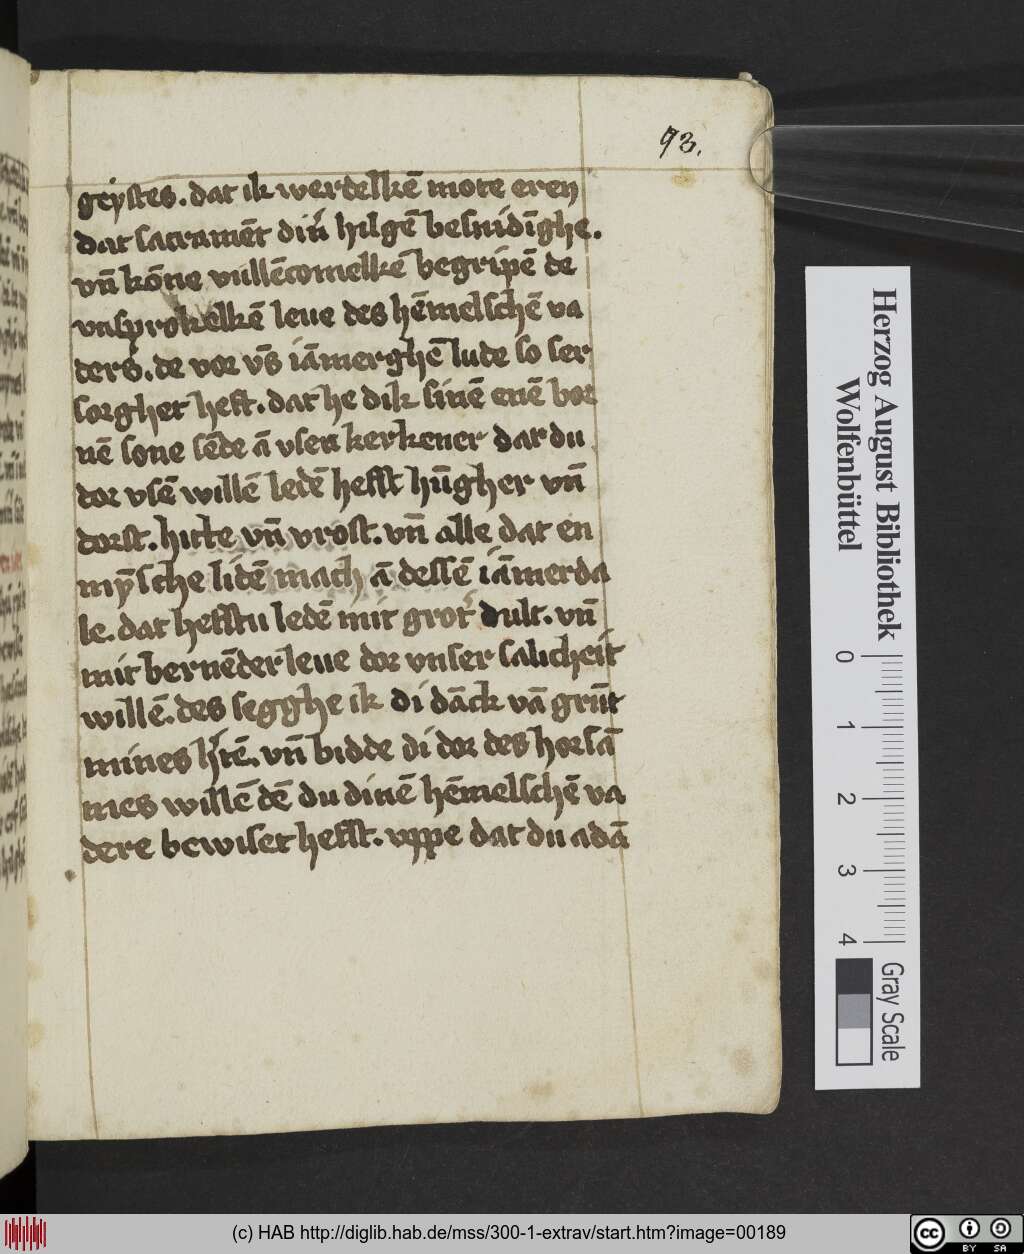 93.
geystes. dat ik werdelkē mote eren
dat sacramēt din̄ hilgē besnidīghe.
vn̄ kōne vullēcomelkē begripē de
vnsprokelkē leue des hēmelschē va
ders. de vor vs̄ iāmerghē lude so ser
sorghet heft. dat he dik sinē enē bor
nē sone sēde ā vsen kerkener dat du
dor vsē willē ledē hefst hūgher vn̄
dorst. hitte vn̄ vrost. vn̄ alle dat en
mȳsche lidē mach ā dessē iāmerda
le. dat hefstu ledē mit grot' dult. vn̄
mit bernēder leue dor vnser salicheit
willē. des segghe ik di dāck vā grūt
mines h'tē. vn̄ bidde di dor des horsā
mes willē dē du dinē hēmelschē va
dere bewiset hefst. vppe dat du adā
Herzog August Bibliothek
Wolfenbüttel
0 1 2 3 4
Gray Scale
(c) HAB http://diglib.hab.de/mss/300-1-extrav/start.htm?image=00189
cc BY SA